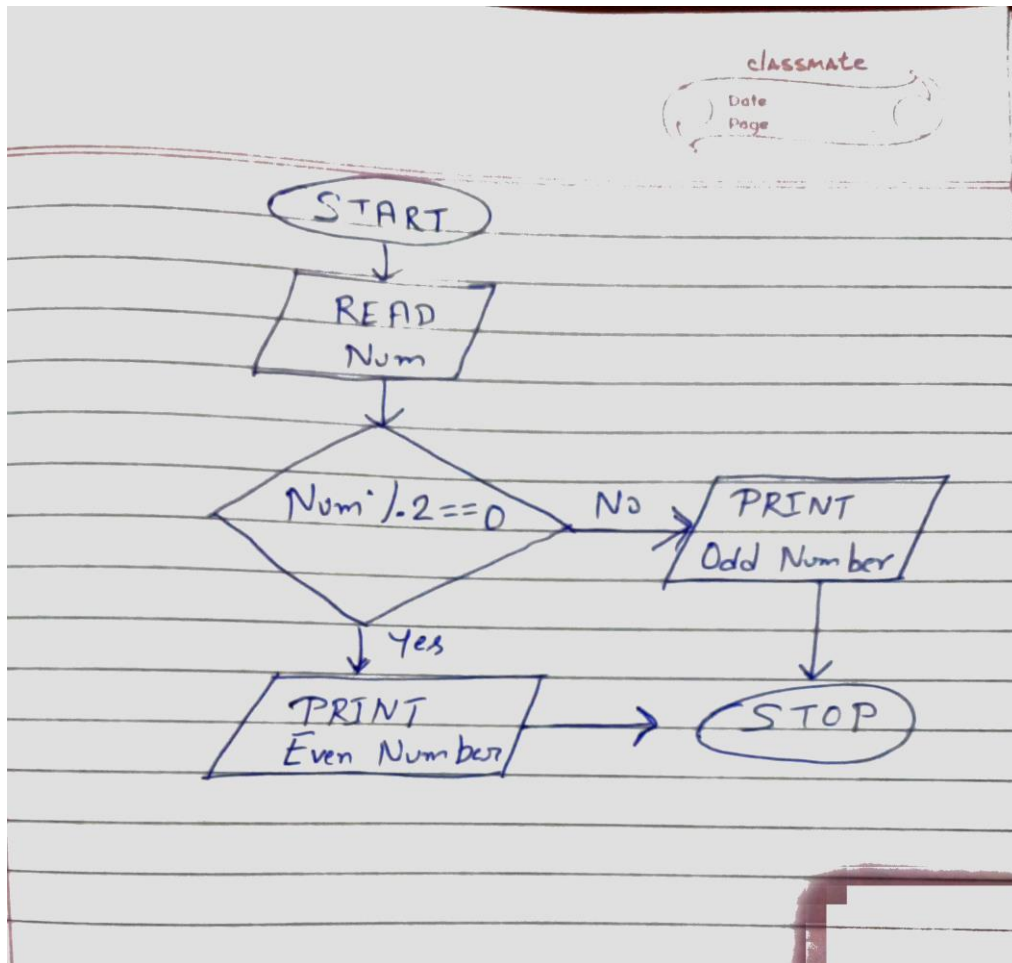 classmate
Date
Page
START
READ
Num
Num % 2 == 0
No
PRINT
Odd Number
Yes
PRINT
Even Number
STOP